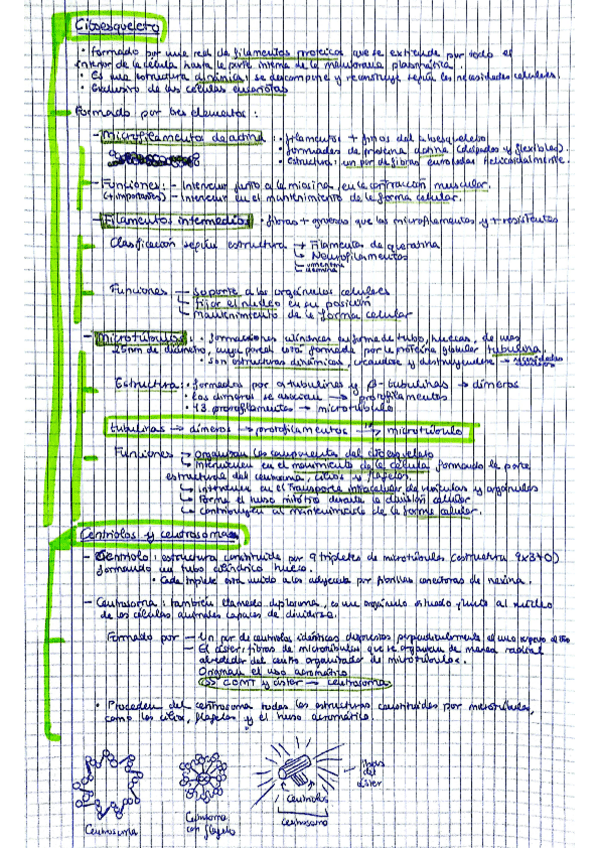 Citoesqueleto
• Formado por una red de filamentos proteicos que se extiende por todo el
interior de la célula hasta la parte interna de la membrana plasmática.
• Es una estructura dinámica: se descompone y reconstruye según las necesidades celulares.
• Exclusivo de las células eucariotas
Formado por tres elementos:
- Microfilamentos de actina: • filamentos + finos del citoesqueleto
• formados de proteína actina (delgados y flexibles).
• estructura: un par de fibras enrolladas helicoidalmente.
- Funciones: - Intervenir junto a la miosina, en la contracción muscular.
(+importantes) - Intervenir en el mantenimiento de la forma celular.
- Filamentos intermedios • fibras + gruesas que los microfilamentos y + resistentes
Clasificación según estructura → Filamentos de queratina
→ Neurofilamentos
→ vimentina
→ desmina
Funciones → soporte a los orgánulos celulares
→ Fijar el núcleo en su posición
→ mantenimiento de la forma celular
- Microtúbulos: • formaciones cilíndricas en forma de tubo, huecas, de unos
25nm de diámetro, cuya pared está formada por la proteína globular tubulina.
• son estructuras dinámicas, creándose y destruyéndose →
Estructura: • formados por α tubulinas y β-tubulinas → dímeros
• Los dímeros se asocian → protofilamentos
• 13 protofilamentos → microtúbulo
tubulinas → dímeros → protofilamentos → microtúbulo
Funciones → organizan los componentes del citoesqueleto
→ intervienen en el movimiento de la célula formando la parte
estructural del centrosoma, cilios y flagelos.
→ intervienen en el transporte intracelular de vesículas y orgánulos
→ Forma el huso mitótico durante la división celular
→ contribuyen al mantenimiento de la forma celular.
Centriolos y centrosomas
- Centriolo: estructura constituida por 9 tripletes de microtúbulos (estructura 9x3+0)
formando un tubo cilíndrico hueco.
• Cada triplete está unido a los adyacentes por fibrillas conectoras de nexina.
- Centrosoma: también llamado diplosoma, es un orgánulo situado junto al núcleo
de las células animales capaces de dividirse.
Formado por - Un par de centriolos idénticos dispuestos perpendicularmente el uno respecto al otro
- El áster, fibras de microtúbulos que se organizan de manera radial
alrededor del centro organizador de microtúbulos.
Originan el uso acromático
COMT y áster → centrosoma
• Proceden del centrosoma todas las estructuras constituidas por microtúbulos,
como los cilios, flagelos y el huso acromático.
fibras
del
áster
centriolos
centrosoma
Centrosoma
Centrosoma
con flagelo